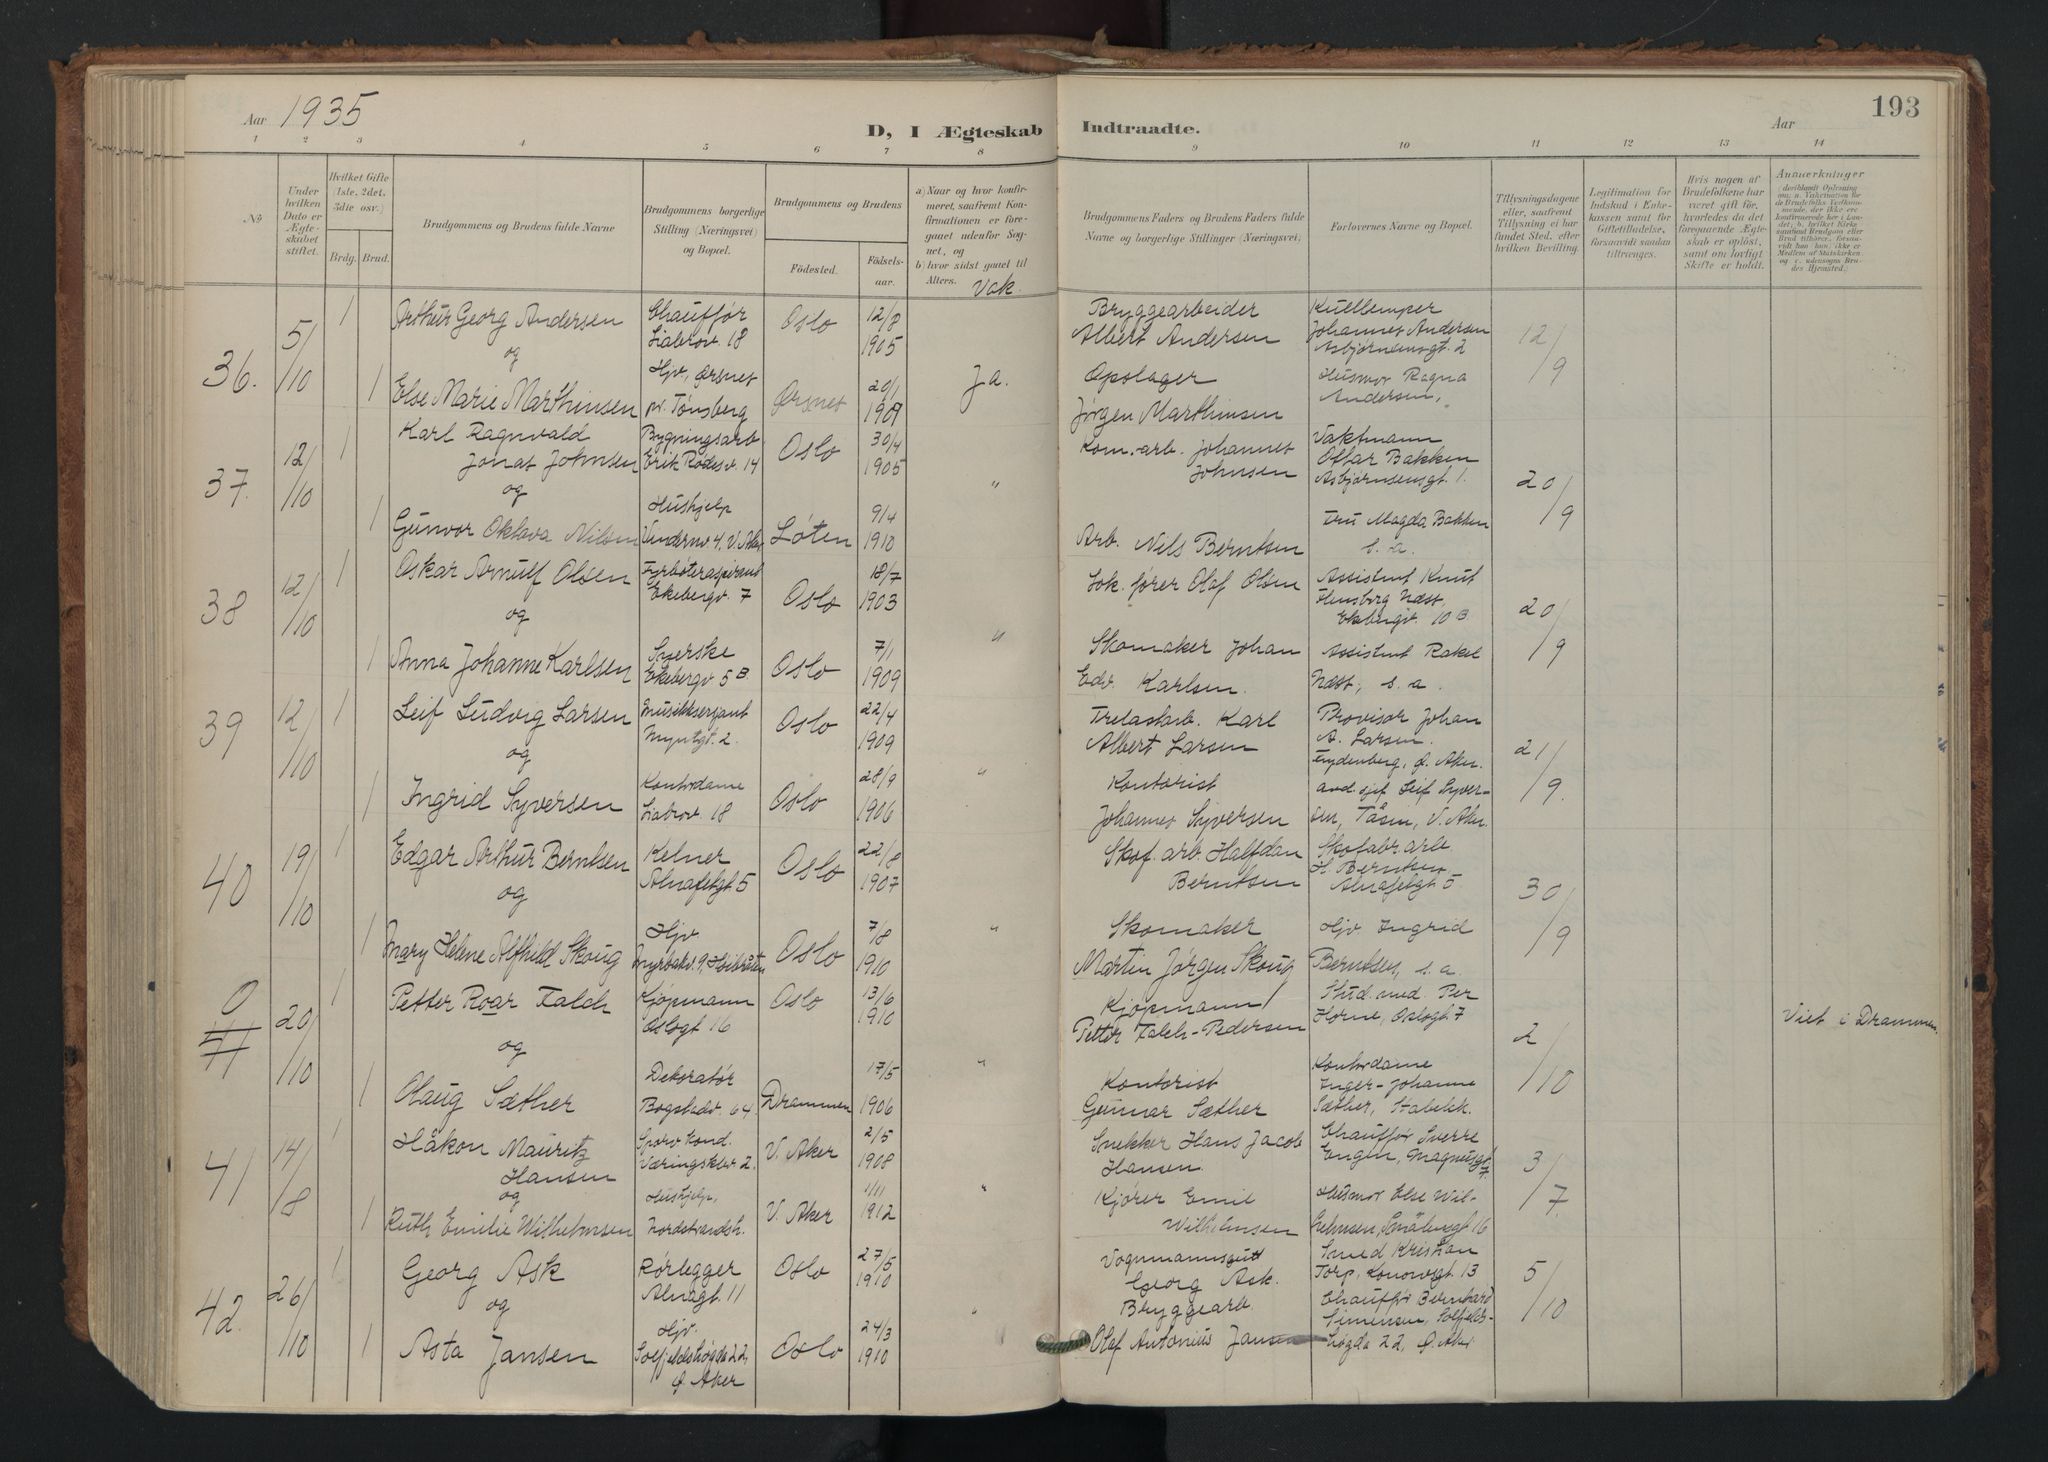 Aar 1935
D, I Ægteskab Indtraadte.
Aar
193
1 2 3 4 5 6 7 8 9 10 11 12 13 14
№
Under hvilken Dato er Ægteskabet stiftet.
Hvilket Gifte (1ste, 2det, 3die osv.)
Brdg. Brud.
Brudgommens og Brudens fulde Navne
Brudgommens borgerlige Stilling (Næringsvei) og Bopæl.
Brudgommens og Brudens
Fødested.
Fødselsaar.
a) Naar og hvor konfirmeret, saafremt Konfirmationen er foregaaet udenfor Sognet, og
b) hvor sidst gaaet til Alters.
Vak.
Brudgommens Faders og Brudens Faders fulde Navne og borgerlige Stillinger (Næringsvei).
Forlovernes Navne og Bopæl.
Tillysningsdagene eller, saafremt Tillysning ei har fundet Sted, efter hvilken Bevilling.
Legitimation for Indskud i Enkekassen samt for Giftetilladelse, forsaavidt saadan tiltrænges.
Hvis nogen af Brudefolkene har været gift før, hvorledes da det foregaaende Ægteskab er opløst, samt om lovligt Skifte er holdt.
Anmærkninger
36. 5/10
1 Arthur Georg Andersen
Chauffør
Liabrov. 18
Oslo
12/8 1905
Bryggearbeider
Albert Andersen
Johannes Andersen
Asbjørnsensgt. 2
12/9
og
1 Else Marie Marthinsen
Hjv, Ørsnes
pr. Tønsberg
Ørsnes
20/1 1909
Ja.
Opslager
Jørgen Marthinsen
Husmor Ragna
Andersen,
37. 12/10
1 Karl Ragnvald
Jonas Johnsen
Bygningsarb
Erik Rodesv. 14
Oslo
30/4 1905
Kom.-arb. Johannes
Johnsen
Vaktmann
Ottar Bakken
Asbjørnsensgt. 1.
20/9
og
1 Gunvor Oktava Nilsen
Hushjelp
Vindernv. 4, V. Aker
Løten
9/4 1910
"
Arb. Nils Berntsen
Fru Magda Bakken
s. a.
38 12/10
1 Oskar Arnulf Olsen
Fyrbøteraspirant
Ekebergv. 7
Oslo
18/7 1903
Lok. fører Olaf Olsen
Assistent Knut
Næss,
Ekebergv. 10 B.
20/9
og
1 Anna Johanne Karlsen
Syerske
Ekebergv 5 B
Oslo
7/1 1909
"
Skomaker Johan
Edv. Karlsen.
Assistent Rakel
Næss, s. a.
39 12/10
1 Leif Ludvig Larsen
Musikksersjant
Myntgt. 2.
Oslo
22/4 1909
Trelastarb. Karl
Albert Larsen
Provisor Johan
A. Larsen.
Frydenberg, Ø. Aker.
21/9.
og
1 Ingrid Syversen
Kontordame
Liabrov. 18
Oslo
28/9 1906
"
Kontorist
Johannes Syversen
avd. sjef Leif Syver-
sen, Tåsen, V. Aker.
40 19/10
1 Edgar Arthur Berntsen
Kelner
Alnafetgt 5
Oslo
22/8 1907
Skof. arb. Halfdan
Berntsen
Skofabr arb.
H. Berntsen
Alnafetgt 5
30/9
og
1 Mary Helene Alfhild Skoug
Hjv.
Myrbakv. 9, Høibråten
Oslo
7/8 1910
"
Skomaker
Martin Jørgen Skoug
Hjv. Ingrid
Berntsen, s. a.
0
41 20/10
1 Petter Roar Falch
Kjøpmann
Oslogt 16
Oslo
13/6 1910
Kjøpmann
Petter Falch-Pedersen
Stud. med. Per
Hørne, Oslogt. 7
2/10
Viet i Drammen.
og
1 Olaug Sæther
Dekoratør
Bogstadv. 64
Drammen
17/5 1906
"
Kontorist
Gunnar Sæther
Kontordame
Inger-Johanne
Sæther, Stabekk.
41 14/8
1 Håkon Mauritz
Hansen
Sporv. kond.
Væringsklev 2.
V. Aker
2/5 1908
Snekker Hans Jacob
Hansen.
Chauffør Sverre
Engen, Magnusgt. 7
3/7
og
1 Ruth Emilie Wilhelmsen
Hushjelp,
Nordstrandsh.
V. Aker
1/11 1912
"
Kjører Emil
Wilhelmsen
Husmor Else Wil-
helmsen, Smålensgt 16
42. 26/10
1 Georg Ask
Rørlegger
Alnagt. 11
Oslo
27/5 1910
Vognmannsgutt
Georg Ask.
Smed Kristian
Torp, Konowsgt. 13
5/10
og
1 Asta Jansen
Hjv.
Solfjeldshøgda 22,
Ø. Aker
Oslo
24/3 1910
"
Bryggearb.
Olaf Antonius Jansen
Chauffør Bernhard
Simensen, Solfjelds-
høgda 22, Ø. Aker